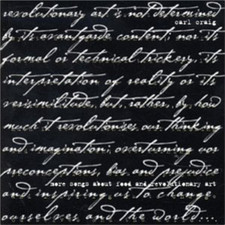 revolutionary art is not determined
carl craig
by its avant garde content; nor its
formal or technical trickery, its
interpretation of reality or its
verisimilitude, but, rather, by how
much it revolutionises our thinking
and imagination; overturning our
preconceptions, bias and prejudice
more songs about food and revolutionary art
and inspiring us to change
ourselves and the world....